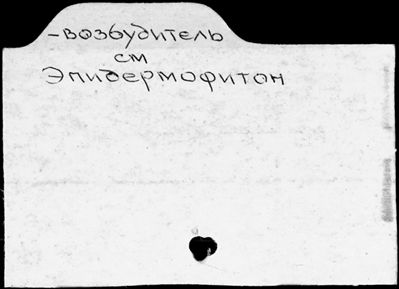 -возбудитель
см
Эпидермофитон